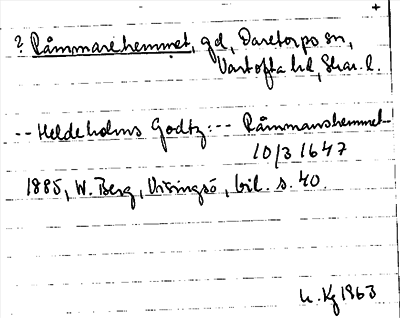 +
? Råmmarehemmet, gd, Daretorps sn,
Vartofta hd, Skar. l.
-- Heldeholms Godtz:-- Råmmanshemmet
10/3 1647
1885, W. Berg, Visingsö, bil. s. 40.
h. Kg 1963